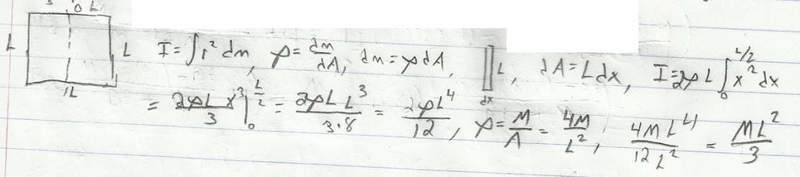 L
L
L
1L
I = ∫r² dm, ρ = dm/dA, dm = ρdA, L, dx dA = Ldx, I = 2ρL ∫₀^(L/2) x² dx
= 2ρL x³/3 |₀^(L/2) = 2ρL L³/3·8 = 2ρL⁴/12, ρ = M/A = 4M/L², 4ML⁴/12L² = ML²/3